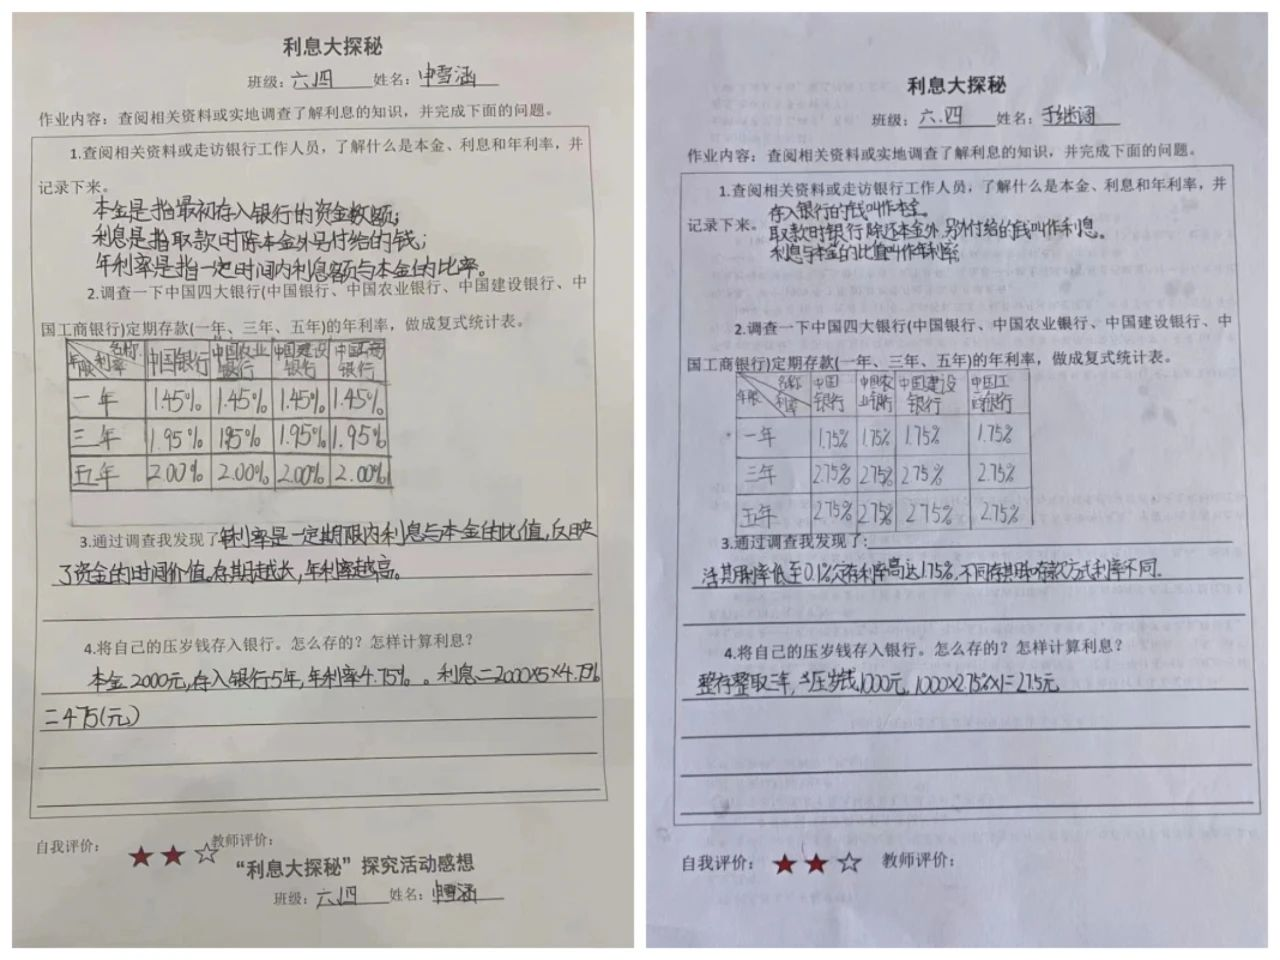 利息大探秘
班级：六.四 姓名：申雪涵
作业内容：查阅相关资料或实地调查了解利息的知识，并完成下面的问题。
1.查阅相关资料或走访银行工作人员，了解什么是本金、利息和年利率，并
记录下来。
本金是指最初存入银行的资金数额；
利息是指取款时除本金外另付给的钱；
年利率是指一定时间内利息额与本金的比率。
2.调查一下中国四大银行(中国银行、中国农业银行、中国建设银行、中
国工商银行)定期存款(一年、三年、五年)的年利率，做成复式统计表。
年限 利率 名称 中国银行 中国农业银行 中国建设银行 中国工商银行
一年 1.45% 1.45% 1.45% 1.45%
三年 1.95% 195% 1.95% 1.95%
五年 2.00% 2.00% 2.00% 2.00%
3.通过调查我发现了年利率是一定期限内利息与本金的比值，反映
了资金的时间价值。存期越长，年利率越高。
4.将自己的压岁钱存入银行。怎么存的？怎样计算利息？
本金2000元，存入银行5年，年利率4.75%。利息=2000×5×4.75%
=475(元)
自我评价： ★★☆ 教师评价：
“利息大探秘”探究活动感想
班级：六.四 姓名：申雪涵
利息大探秘
班级：六.四 姓名：
作业内容：查阅相关资料或实地调查了解利息的知识，并完成下面的问题。
1.查阅相关资料或走访银行工作人员，了解什么是本金、利息和年利率，并
记录下来。
存入银行的钱叫作本金。
取款时银行除还本金外，另外付给的钱叫作利息。
利息与本金的比值叫作年利率
2.调查一下中国四大银行(中国银行、中国农业银行、中国建设银行、中
国工商银行)定期存款(一年、三年、五年)的年利率，做成复式统计表。
年限 利率 名称 中国银行 中国农业银行 中国建设银行 中国工商银行
一年 1.75% 1.75% 1.75% 1.75%
三年 2.75% 2.75% 2.75% 2.75%
五年 2.75% 2.75% 2.75% 2.75%
3.通过调查我发现了:
活期利率低至0.1%定存利率高达1.75%，不同存期和存款方式利率不同。
4.将自己的压岁钱存入银行。怎么存的？怎样计算利息？
整存整取三年，压岁钱1000元，1000×2.75%×1=27.5元
自我评价： ★★☆ 教师评价：